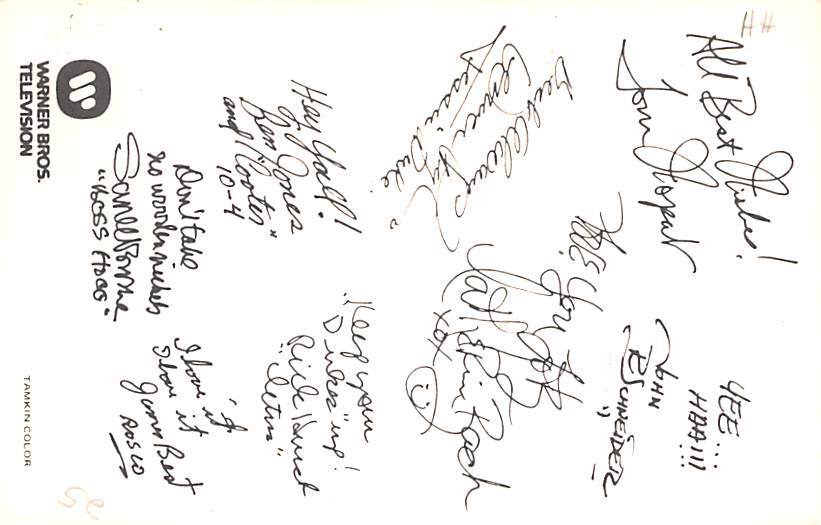 All Best Wishes!
Tom Wopat
YEE...
HAA!!!
JOHN
SCHNEIDER
Best Always
Denver Pyle
Jesse Duke"
You
Catherine Bach
xox
Hey Y'all!
Ben Jones
and "Cooter"
10-4
"Keep your
Dukes" up!
Rick Hurst
"Cletus"
Don't take
no wooden nickels
Sorrell Booke
"BOSS HOGG"
I love it
I love it
James Best
ROSCO
WARNER BROS.
TELEVISION
TAMKIN COLOR